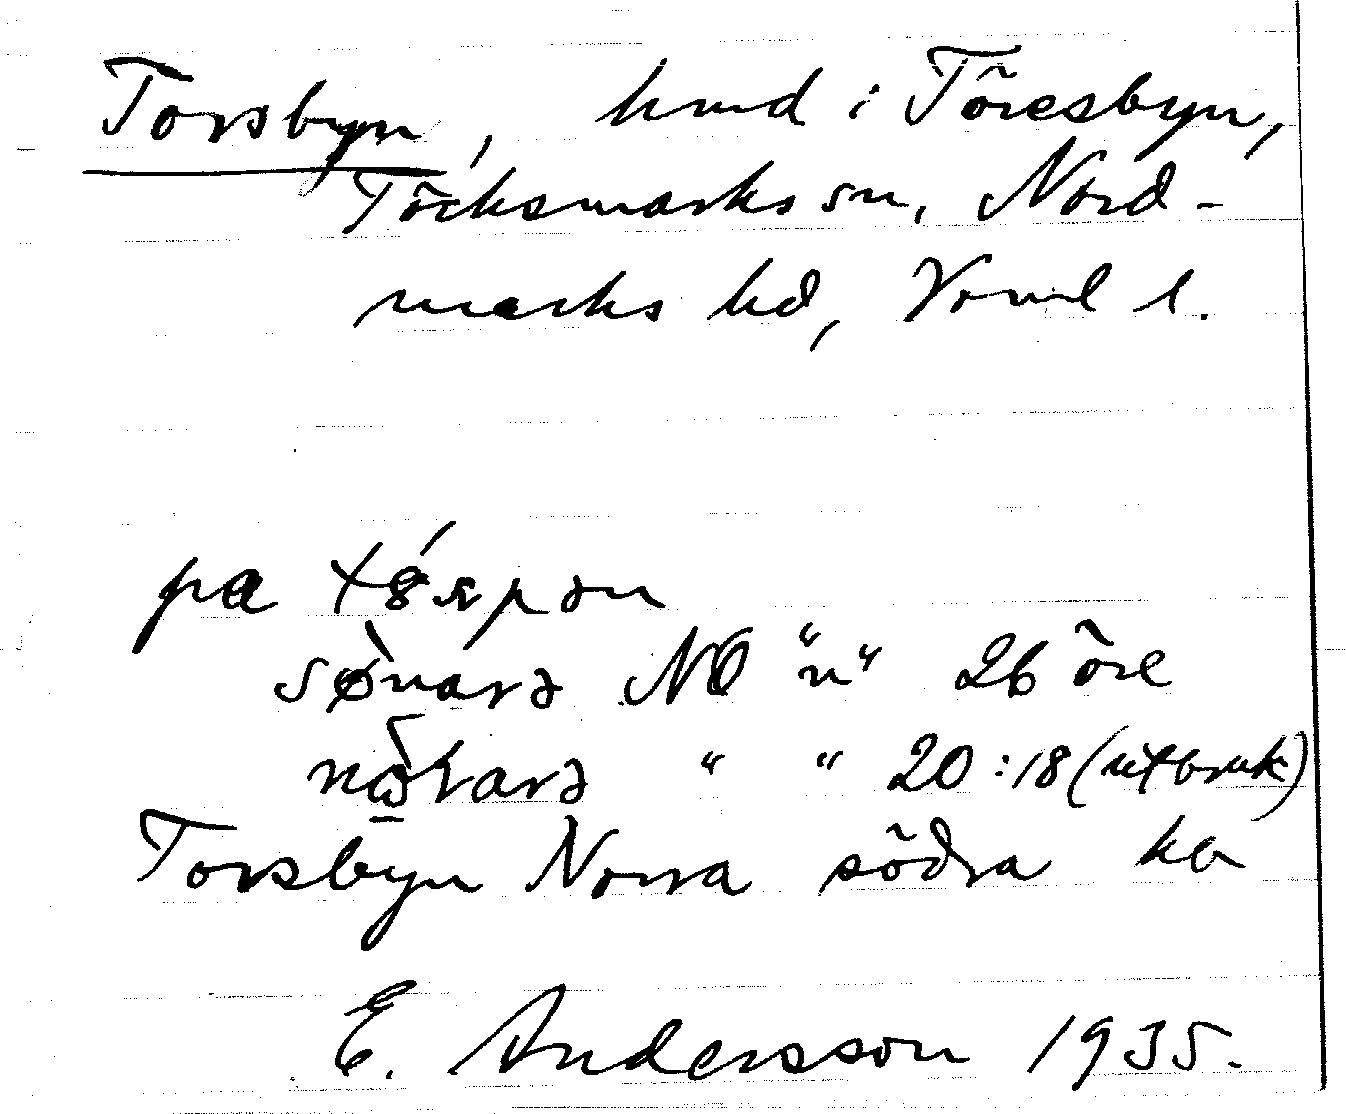 Torsbyn, hmd i Töresbyn,
Töcksmarks sn, Nord-
marks hd, Vrml l.
pa
NO "n" 26 öre
" " 20:18 (utbruk)
Torsbyn Norra södra ka
E. Andersson 1935.